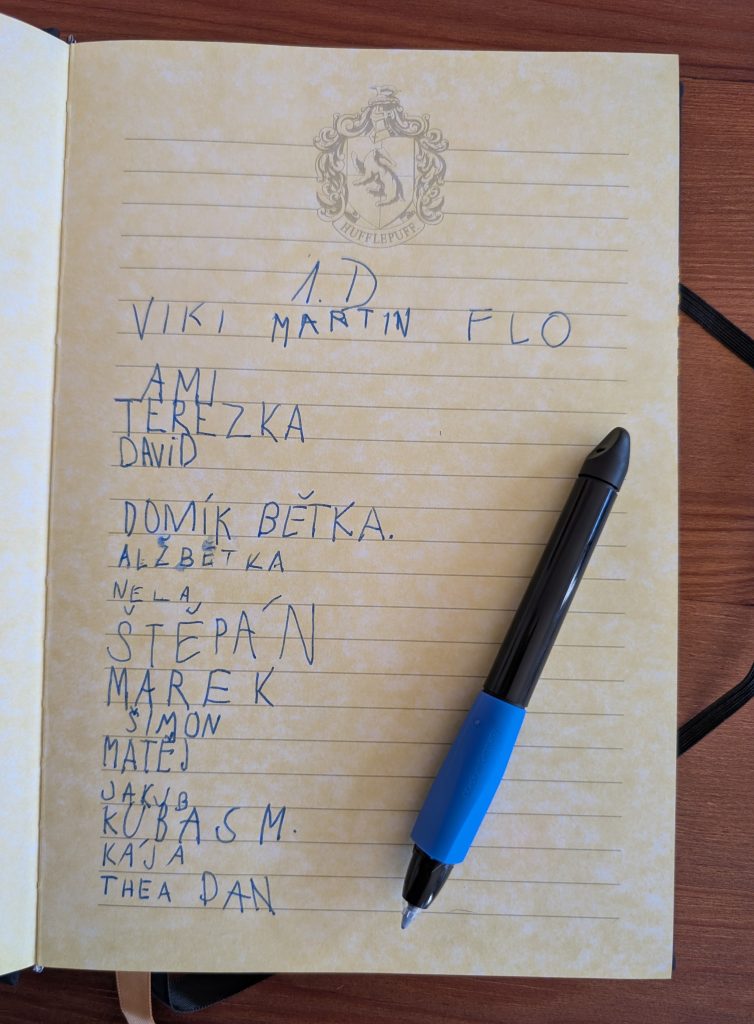 HUFFLEPUFF
1. D
VIKI MARTIN FLO
AMI
TEREZKA
DAVID
DOMÍK BĚTKA.
ALŽBĚTKA
NELA
ŠTĚPÁN
MAREK
ŠIMON
MATĚJ
JAKUB
KUBA S M.
KÁJA
THEA DAN